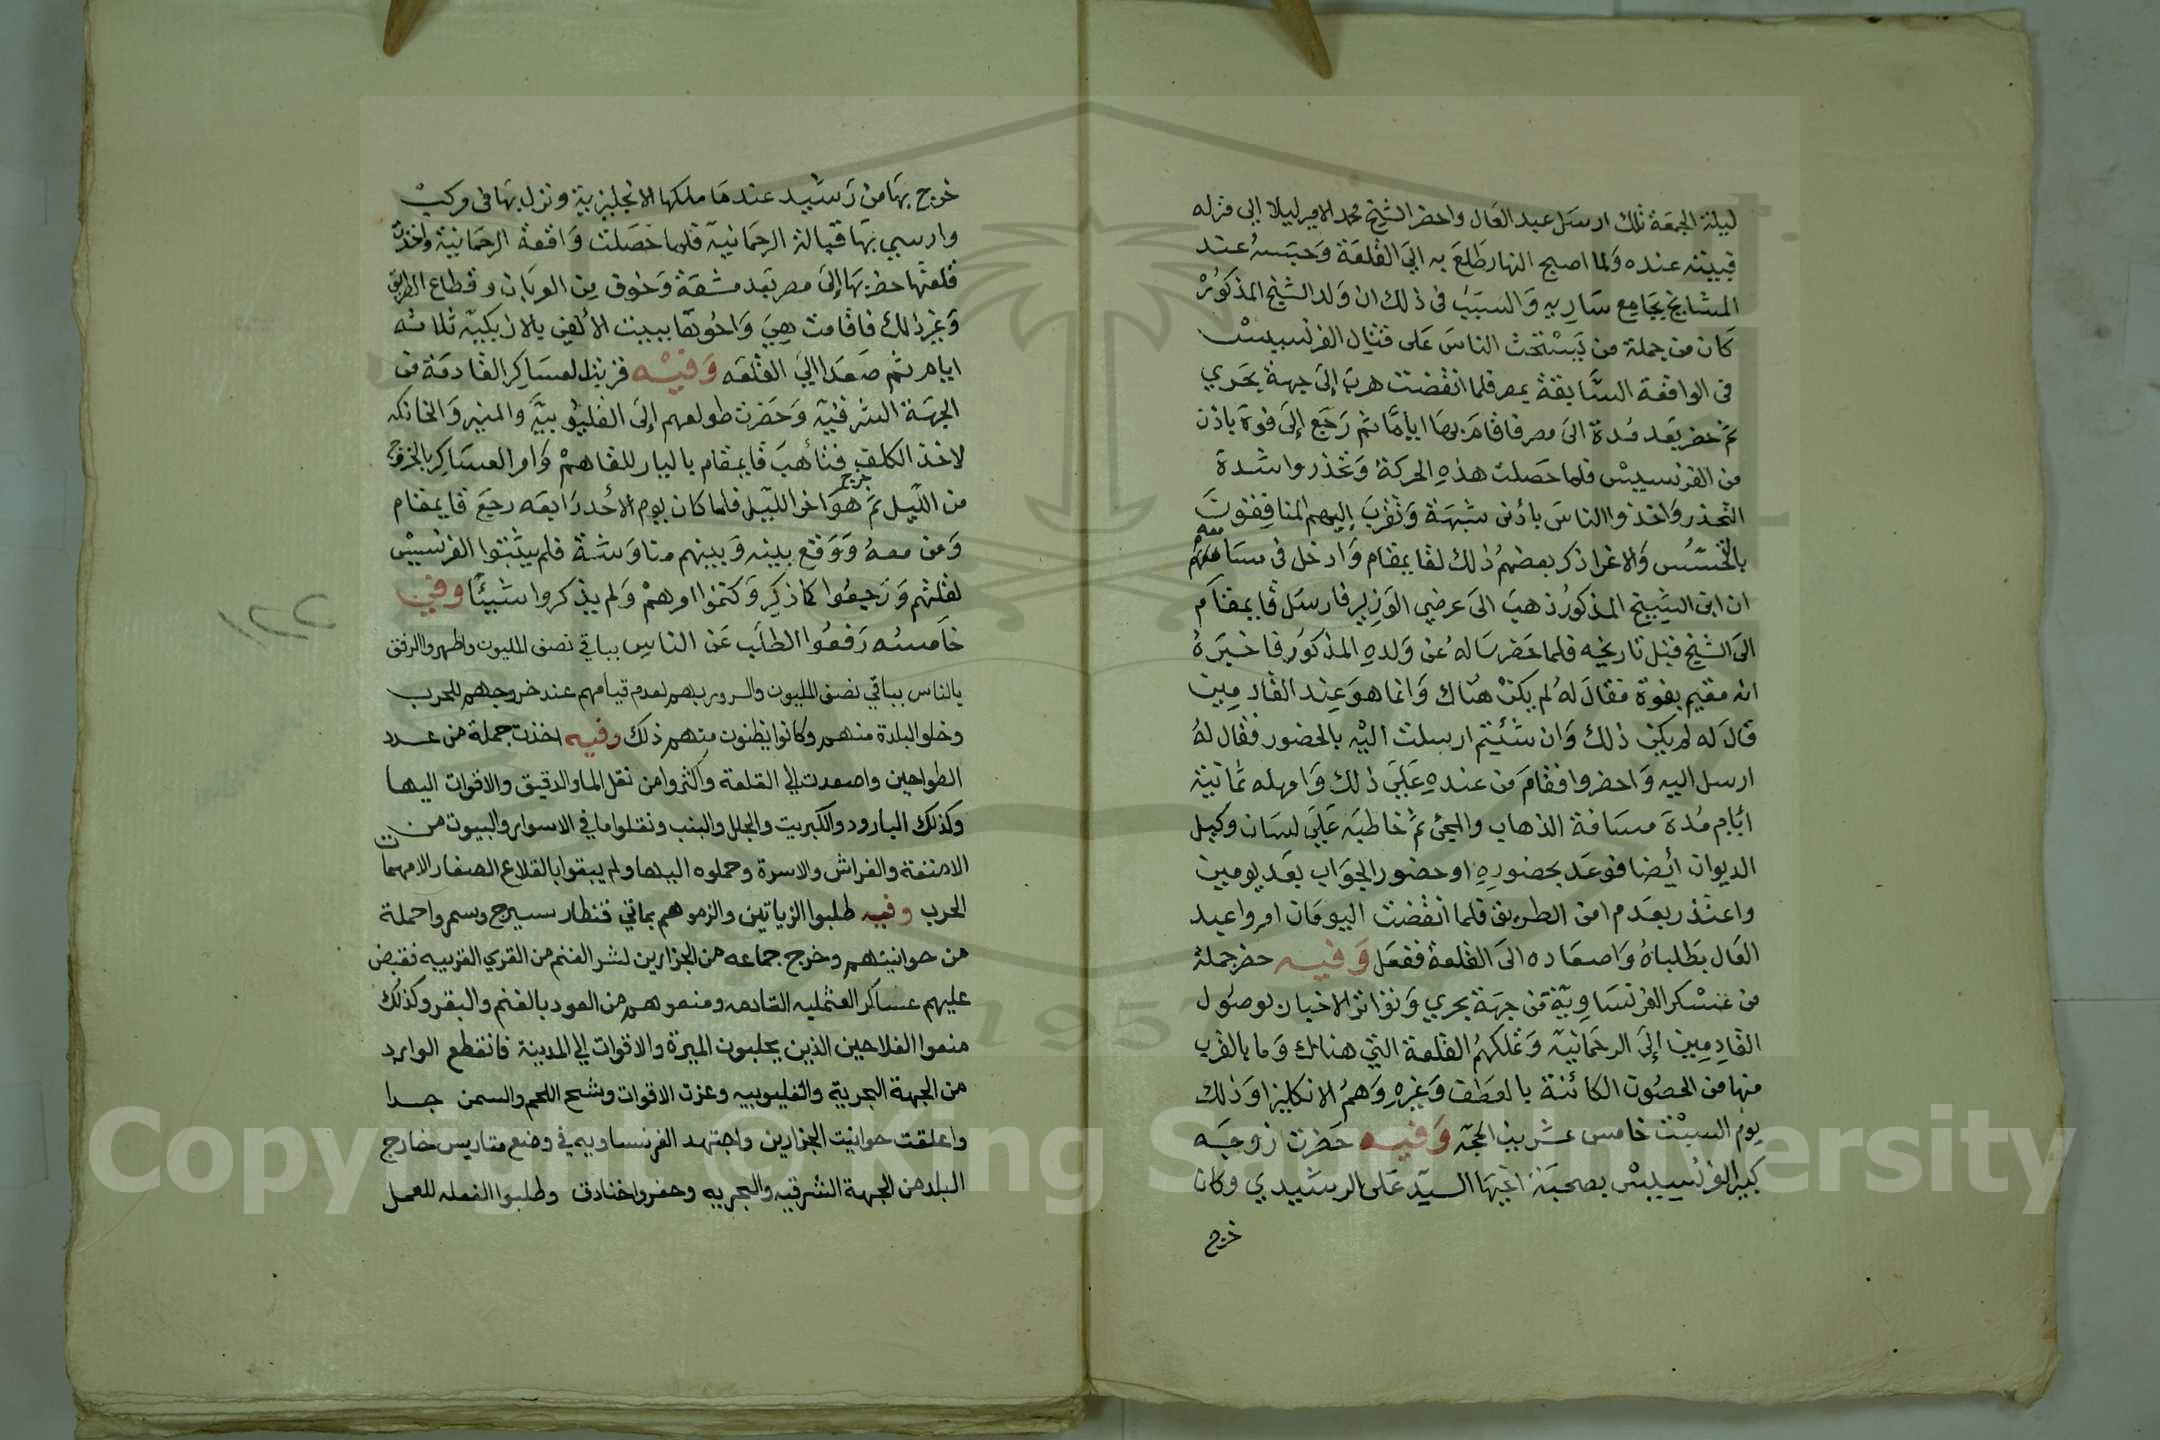 ليلة الجمعة تلك ارسل عبد العال واحضر الشيخ محمد الامير ليلا الى منزله
فبيته عنده ولما اصبح النهار طلع به الى القلعة وحبسه عند
المشايخ بجامع سارية والسبب فى ذلك ان ولد الشيخ المذكور
كان من جملة من يستحث الناس على قتال الفرنسيس
فى الواقعة السابقة بمصر فلما انقضت هرب إلى جهة بحري
ثم حضر بعد مدة الى مصر فاقام بها اياما ثم رجع إلى فوة باذن
من الفرنسيس فلما حصلت هذه الحركة وتحذروا شدة
التحذر واخذوا الناس بادنى شبهة وتقرب إليهم المنافقون
بالتجسس والاغرا ذكر بعضهم ذلك لقايمقام وادخل فى مسامعهم
ان ابن الشيخ المذكور ذهب الى عرضي الوزير فارسل قايمقام
الى الشيخ قبل تاريخه فلما حضر ساله عن ولده المذكور فاخبره
انه مقيم بفوة فقال له لم يكن هناك وانما هو عند القادمين
قال له لم يكن ذلك وان شئتم ارسلت اليه بالحضور فقال له
ارسل اليه واحضروا فقام من عنده على ذلك وامهله ثمانية
ايام مدة مسافة الذهاب والمجئ ثم خاطبه على لسان وكيل
الديوان أيضا فوعد بحضوره او حضور الجواب بعد يومين
واعتذر بعدم امن الطريق فلما انقضت اليومان امروا عبد
العال بطلباه واصعاده الى القلعة ففعل وفيه حضر جملة
من عسكر الفرنساوية من جهة بحري وتواتر الاخبار بوصول
القادمين إلى الرحمانية وتملكهم القلعة التي هنالك وما بالقرب
منها من الحصون الكائنة بالعطف وغيره وهم الانكليز اوذلك
يوم السبت خامس عشرين الحجه وفيه حضرت زوجه
كبير الفرنسيس بصحبة اخيها السيد على الرشيدي وكان
خرج
خرج بها من رشيد عندما ملكها الانجليزية ونزل بها فى مركب
وارسي بها قبالة الرحمانية فلما حصلت واقعة الرحمانية واخذت
قلعتها حضر بها إلى مصر بعد مشقة وخوف من العربان وقطاع الطريق
وغير ذلك فاقامت هي واخوها ببيت الألفي بالازبكية ثلاثه
ايام ثم صعدا الى القلعه وفيه قربت العساكر القادمة من
الجهة الشرقية وحضرت طوالعهم إلى القليوبية والمنير والخانكه
لاخذ الكلف فتأهب قايمقام بالليار للقاهم وامر العساكر بالخروج
من الليل ثم خرج هو اخر الليل فلما كان يوم الاحد رابعه رجع قايمقام
ومن معه ووقع بينه وبينهم مناوشة فلم يثبتوا الفرنسيس
لقلتهم ورجعوا كما ذكر وكتموا امرهم ولم يذكروا شيئا وفي
خامسه رفعوا الطلب عن الناس بباقي نصف المليون واظهروا الرفق
بالناس بباقي نصف المليون والسرور بهم لعدم قيامهم عند خروجهم للحرب
وخلوا البلدة منهم وكانوا يظنون منهم ذلك وفيه اخذت جملة من عدد
الطواحين واصعدت إلى القلعة واكثروا من نقل الما والدقيق والاقوات اليها
وكذلك البارود والكبريت والجلل والبنب ونقلوا ما في الاسوار والبيوت من
الامتعة والفراش والاسرة وحملوه اليها ولم يبقوا بالقلاع الصغار الا مهمات
الحرب وفيه طلبوا الزياتين والزموهم بماتي قنطار سيرج وسمروا جملة
من حوانيتهم وخرج جماعه من الجزارين لشر الغنم من القري القريبه فقبض
عليهم عساكر العثمليه القادمه ومنعوهم من العود بالغنم والبقر وكذلك
منعوا الفلاحين الذين يجلبون الميرة والاقوات إلى المدينة فانقطع الوارد
من الجهة البحرية والقليوبيه وعزت الاقوات وشح اللحم والسمن جدا
واغلقت حوانيت الجزارين واجتهد الفرنساويه في وضع متاريس خارج
البلد من الجهة الشرقيه والبحريه وحفروا خنادق وطلبوا الفعله للعمل
Copyright © King Saud University
1957